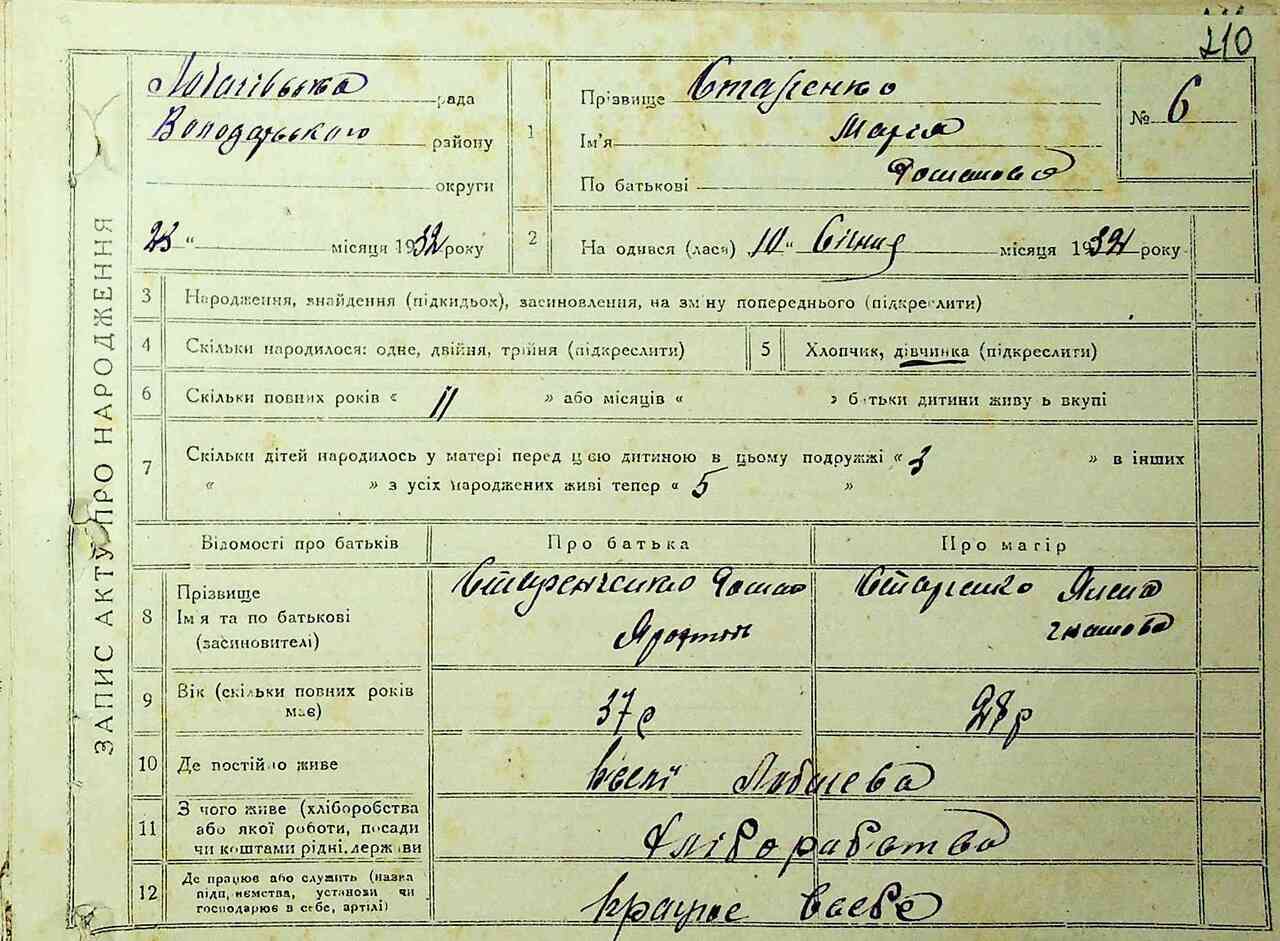 210
Лобачівська рада
Володарського району
округи
23 " місяця 1932 року
1
Прізвище Старенко
Ім'я Марія
По батькові Романовна
№ 6
2
На одився (лася) 10 " Січня місяця 1932 року
ЗАПИС АКТУ ПРО НАРОДЖЕННЯ
3 Народження, знайдення (підкидьох), засиновлення, на зміну попереднього (підкреслити)
4 Скільки народилося: одне, двійня, трійня (підкреслити) 5 Хлопчик, дівчинка (підкреслити)
6 Скільки повних років « 11 » або місяців « » батьки дитини живуть вкупі
7 Скільки дітей народилось у матері перед цією дитиною в цьому подружжі « 3 » в інших
« » з усіх народжених живі тепер « 5 »
Відомості про батьків Про батька Про матір
8 Прізвище
Ім я та по батькові
(засиновителі)
Старенченко Роман
Старенко
9 Вік (скільки повних років має) 37 р 28 р
10 Де постійно живе в селі
11 З чого живе (хліборобства
або якої роботи, посади
чи коштами рідні, держави
Хліборабства
12 Де працює або служить (назва
підприємства, установи чи
господарює в себе, артілі)
Працює всебе